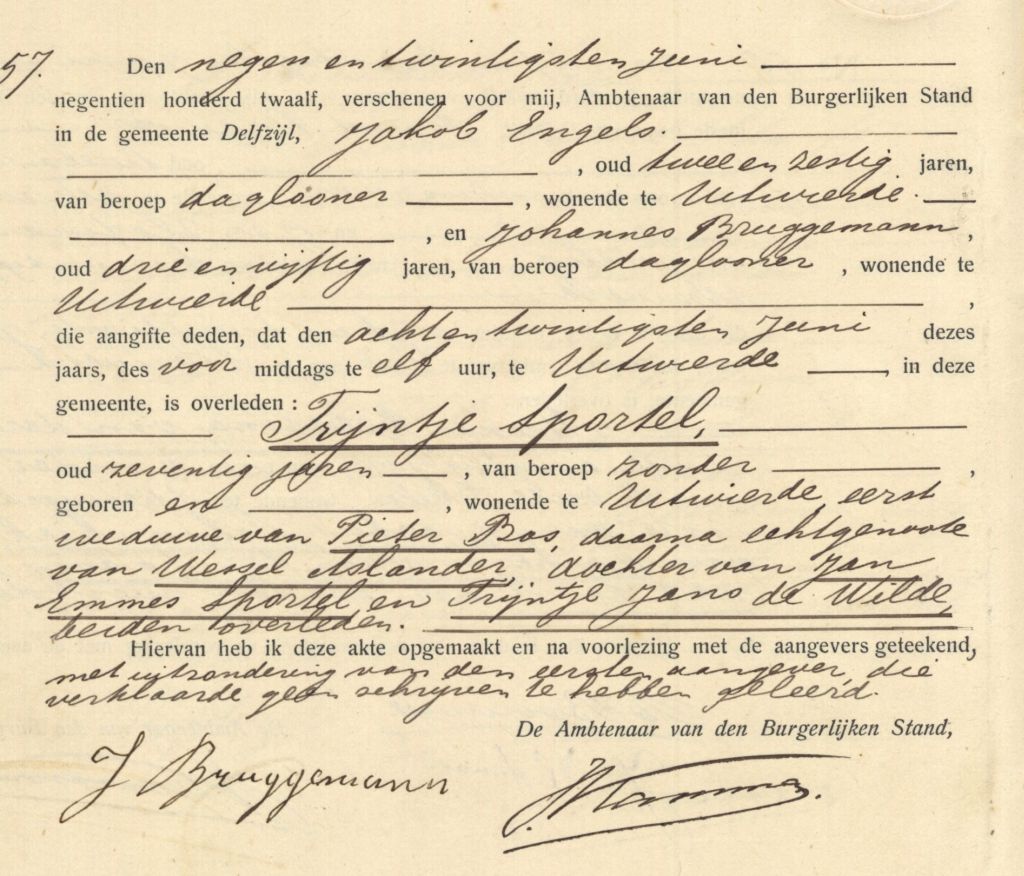 57.
Den negen en twintigsten Juni
negentien honderd twaalf, verschenen voor mij, Ambtenaar van den Burgerlijken Stand
in de gemeente Delfzijl, Jakob Engels.
, oud twee en zestig jaren,
van beroep daglooner , wonende te Uitwierde.
, en Johannes Bruggemann,
oud drie en vijftig jaren, van beroep daglooner , wonende te
Uitwierde ,
die aangifte deden, dat den acht en twintigsten Juni dezes
jaars, des voor middags te elf uur, te Uitwierde , in deze
gemeente, is overleden :
Trijntje Sportel,
oud zeventig jaren , van beroep zonder ,
geboren en , wonende te Uitwierde, eerst
weduwe van Pieter Bos, daarna echtgenoote
van Wessel Aslander, dochter van Jan
Emmes Sportel, en Trijntje Jans de Wilde,
beiden overleden.
Hiervan heb ik deze akte opgemaakt en na voorlezing met de aangevers geteekend,
met uitzondering van den eersten aangever, die
verklaarde geen schrijven te hebben geleerd.
De Ambtenaar van den Burgerlijken Stand,
J Bruggemann